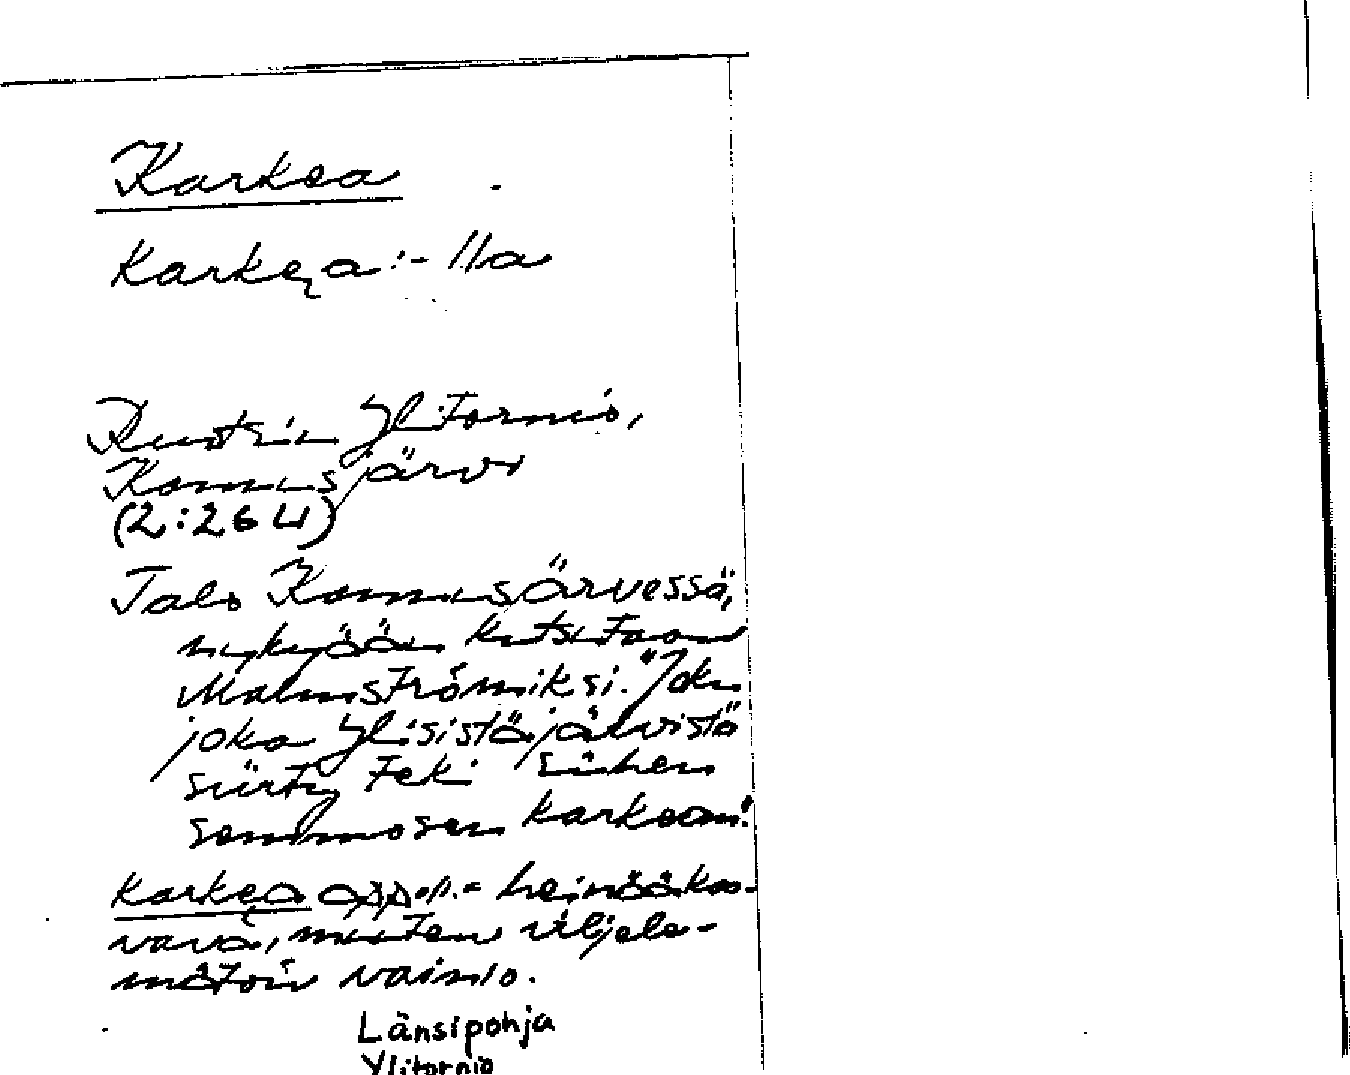 Karkea
Karkea̮:-lla
Ruotsin Ylitornio,
Kannusjärvi
(2:264)
Talo Kannusärvessä,
nykyään kutsutaan
Malmströmiksi. "Joku
joka Ylisistäjärvistä
siirty teki siihen
semmosen karkean."
Karkea̮ app. = heinääkas-
vava, muuten viljele-
mätöin vainio.
Länsipohja
Ylitornio